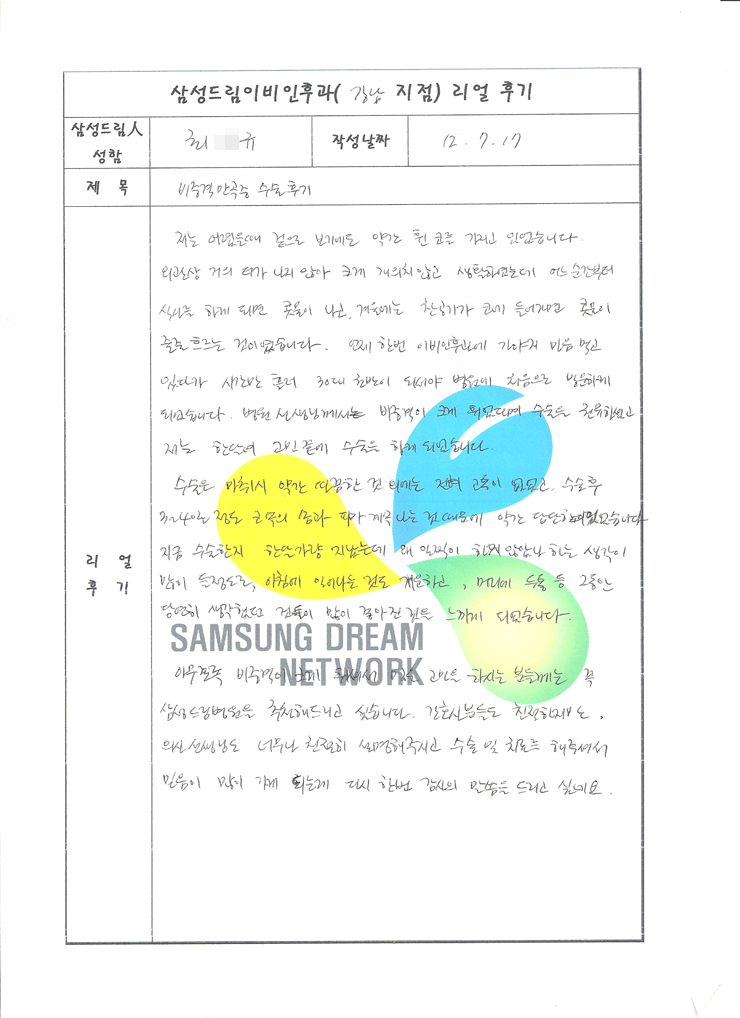 삼성드림이비인후과( 강남 지점) 리얼 후기
삼성드림人 성함
최 규
작성날짜
12. 7. 17
제 목
비중격만곡증 수술후기
리 얼 후 기
저는 어렸을때 겉으로 보기에도 약간 휜 코를 가지고 있었습니다.
외관상 거의 티가 나지 않아 크게 개의치 않고 생활하였는데 어느 순간부터
식사를 하게 되면 콧물이 나고, 겨울에는 찬공기가 코에 들어가면 콧물이
줄줄 흐르는 것이였습니다. 언제 한번 이비인후과에 가야지 마음 먹고
있다가 시간만 흘러 30대 초반이 되서야 병원에 처음으로 방문하게
되었습니다. 병원 선생님께서는 비중격이 크게 휘었다며 수술을 권유하셨고
저는 한달여 고민끝에 수술을 하게 되었습니다.
수술은 마취시 약간 따끔한 것 외에는 전혀 고통이 없었고, 수술후
3~4일 정도 코속의 솜과 피가 계속 나는 것 때문에 약간 답답하였습니다
지금 수술한지 한달가량 지났는데 왜 일찍이 하지 않았나 하는 생각이
많이 들정도로, 아침에 일어나는 것도 개운하고, 머리에 두통 등 그동안
당연히 생각했던 것들이 많이 좋아진 것을 느끼게 되었습니다.
아무쪼록 비중격이 크게 휘셔서 고민을 하시는 분들께는 꼭
삼성드림병원을 추천해드리고 싶습니다. 간호사분들도 친절하지만,
의사 선생님도 너무나 친절히 설명해주시고 수술 및 치료를 해주셔서
믿음이 많이 가게 되는게 다시 한번 감사의 말씀을 드리고 싶네요.
SAMSUNG DREAM
NETWORK